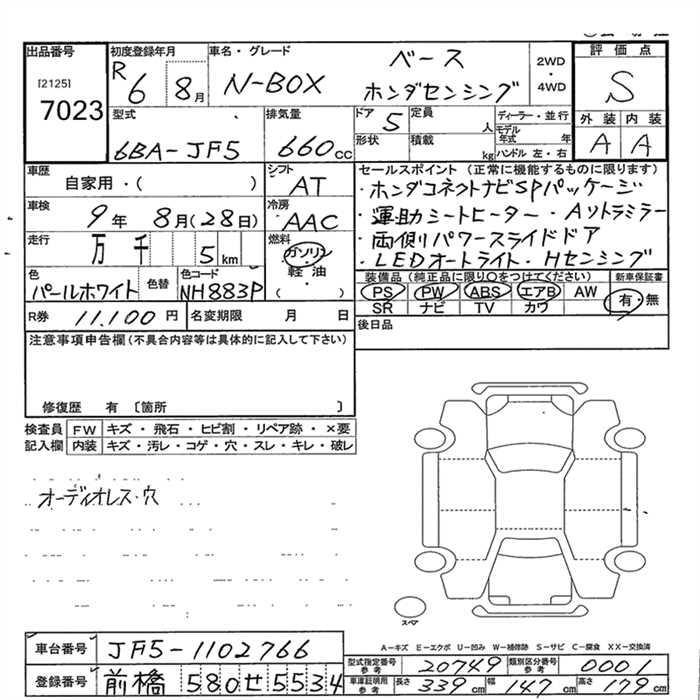 出品番号 初度登録年月 車名・グレード 評価点
[2125]
7023
R6 8月
N-BOX
ベース
ホンダセンシング
2WD
・
4WD
S
型式 排気量 ドア 定員 ディーラー・並行 外装 内装
6BA-JF5
660cc
5
人
モデル年式 年
形状 積載 kg ハンドル 左・右
A A
車歴 シフト セールスポイント (正常に機能するものに限ります)
自家用・( )
AT
・ホンダコネクトナビSPパッケージ
車検 9年 8月(28日)
冷房 AAC
・運助シートヒーター・Aソトラミラー
走行 万 千 5km
燃料 ガソリン
軽・油
・
( )
・両側パワースライドドア
・LEDオートライト・Hセンシング
色 色替 色コード
パールホワイト
NH883P
装備品 (純正品に限り○をつけてください) 新車保証書
PS PW ABS エアB AW
SR ナビ TV カワ
有・無
R券 11,100円 名変期限 月 日
後日品
注意事項申告欄(不具合内容等は具体的に記入して下さい)
修復歴 有 〔箇所 〕
検査員 FW キズ・飛石・ヒビ割・リペア跡・×要
記入欄 内装 キズ・汚レ・コゲ・穴・スレ・キレ・破レ
オーディオレス・穴
スペア
A-キズ E-エクボ U-凹み W-補修跡 S-サビ C-腐食 XX-交換済
車台番号 JF5-1102766
型式指定番号 参考 20749 類別区分番号 参考 0001
登録番号 前橋 580 せ 5534
車庫証明用 参考 長さ 339cm 幅 147cm 高さ 179cm